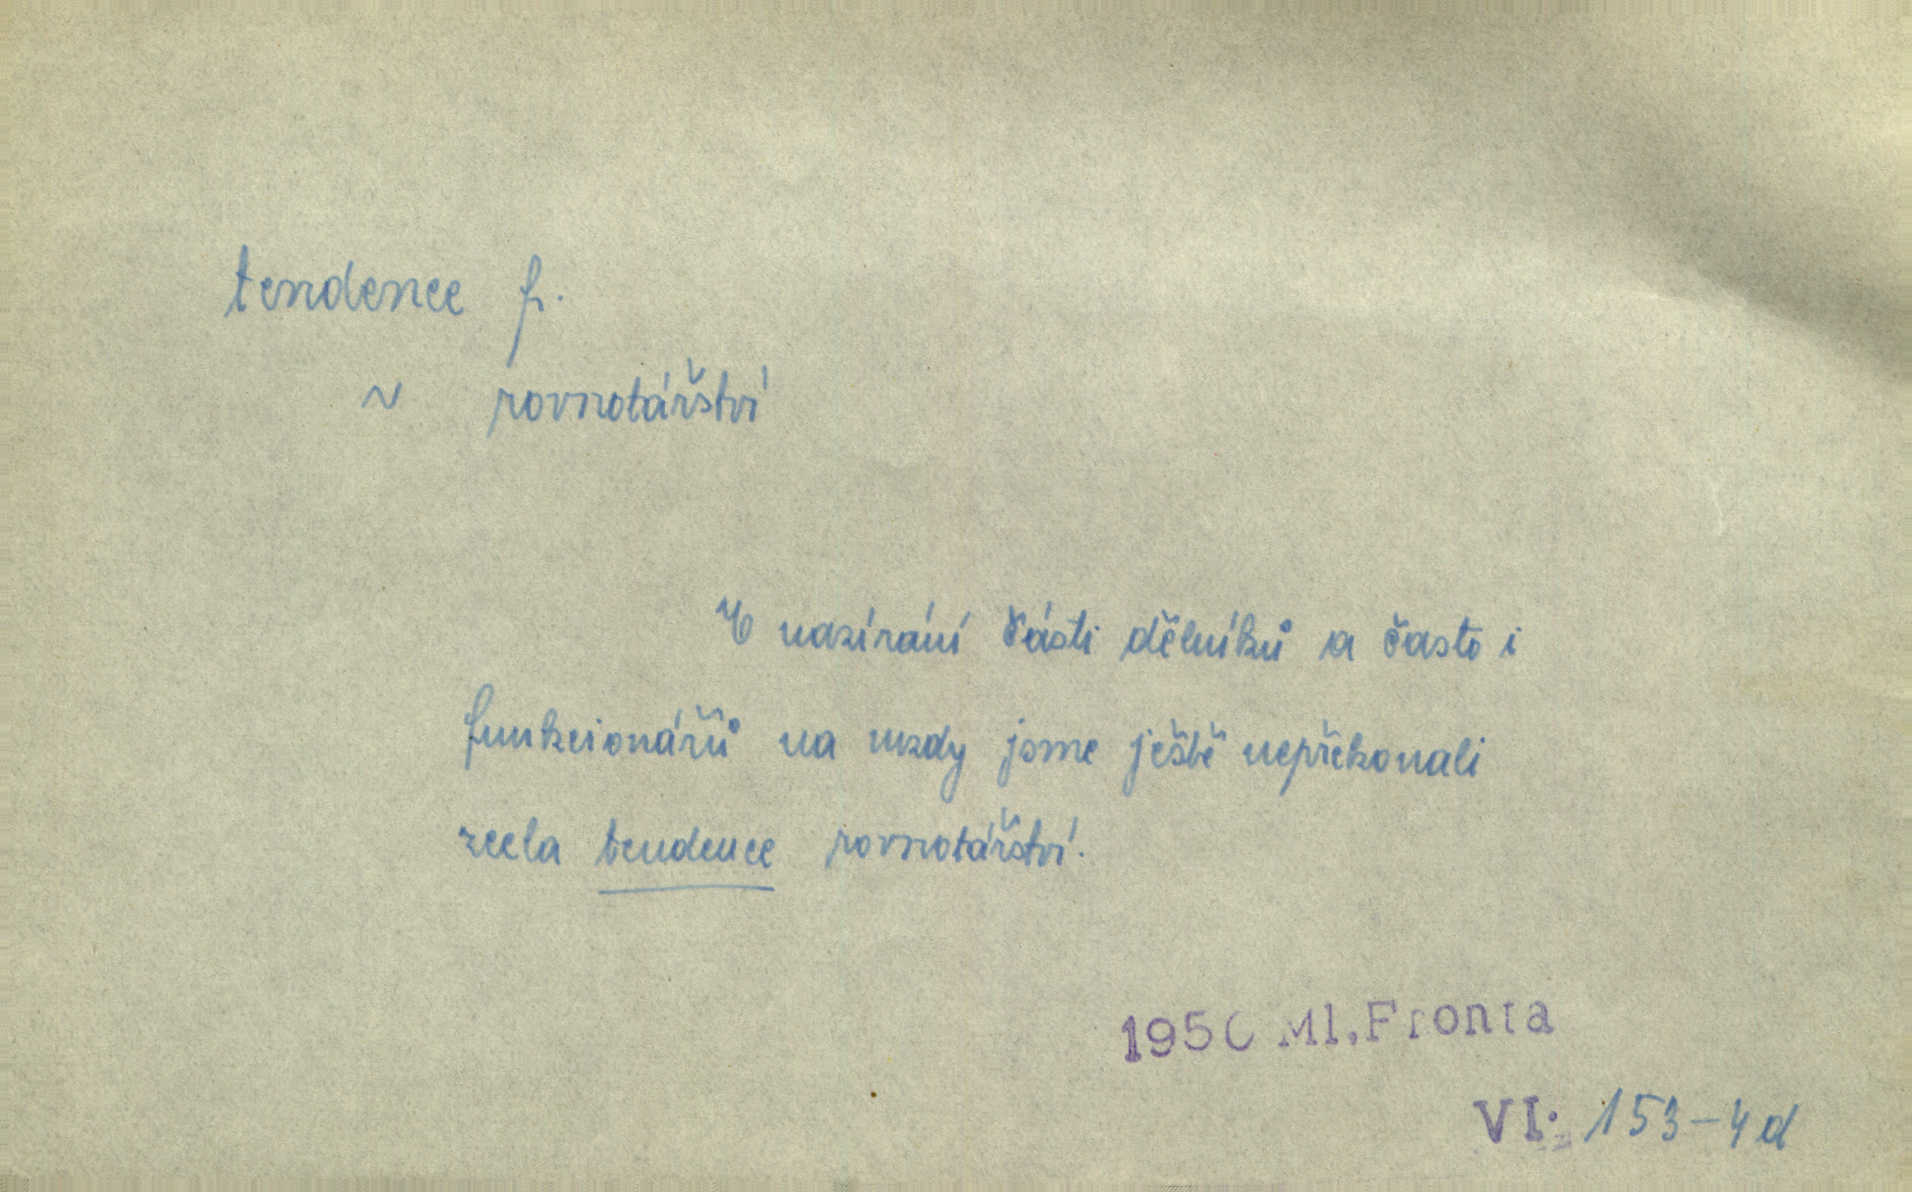 tendence f.
~ rovnotářství
V nazírání části dělníků a často i
funkcionářů na mzdy jsme ještě nepřekonali
zcela tendence rovnotářství.
1950 Ml.Fronta
VI. 153-4 d